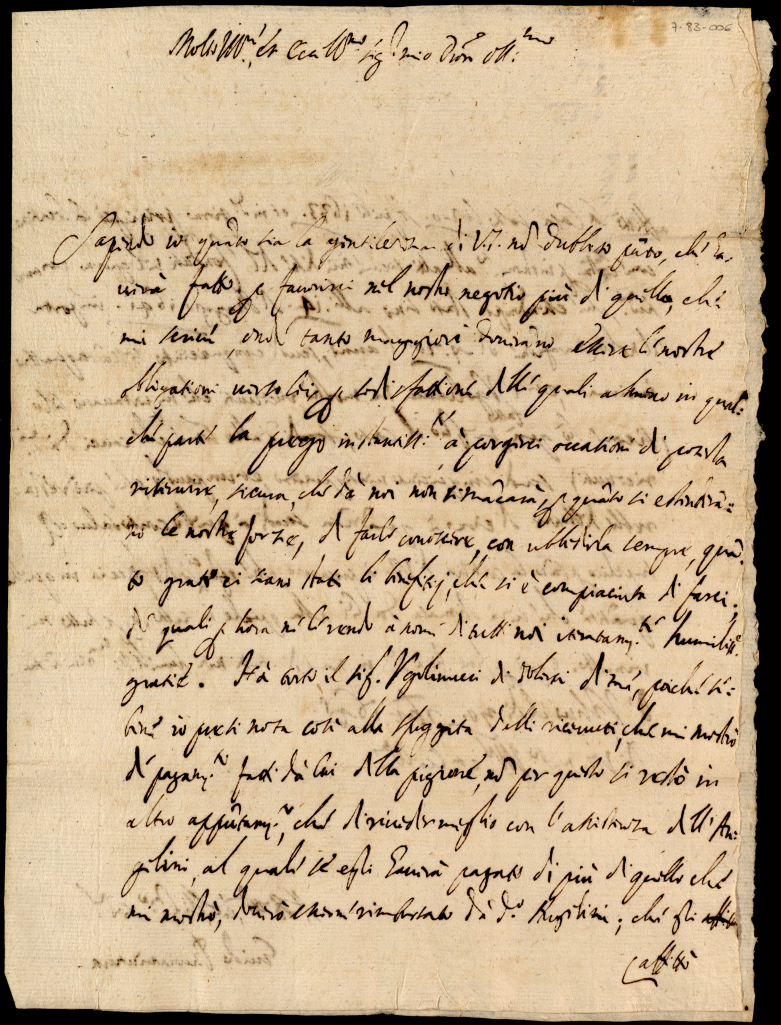 7-83-006
Molto Ill.re, et Ecc.mo Sig.r mio P.ron Oss.mo
Sapendo io quãto sia la gentilezza di V.S. nõ dubbito pũto, che ha-
verà fatto p favorirci nel nostro negotio più di quello, che
mi scrive, onde tanto maggiori doverãno essere le nostre
obligationi verso lei, p sodisfattione delle quali almeno in qual-
che parte la prego instantiss.te à porgerci occasioni di poterla
riservire, sicura, che dà noi non si mãcarà, p quãto si estenderã-
no le nostre forze, di farle conoscere, con ubbidirla sempre, quã-
to grati ci siano stati li beneficij, che si è compiaciuta di farci,
de quali p hora ne le rendo à nome di tutti noi humiliss.e
gratie. Hà torto il Sig. Ugolinucci di dolersi di me, poiche se
bene io presi nota così alla sfuggita delli ricevuti, che mi mostrò
de pagam.ti fatti dà lui della pigione, nõ per questo si restò in
altro appũtam.to, che di riveder meglio con l'assistenza dell'An-
gelini, al quale se egli haverà pagato di più di quello che
mi mostrò, doverò esserne rimborsato dà d.o Angelini; che gli
affittò